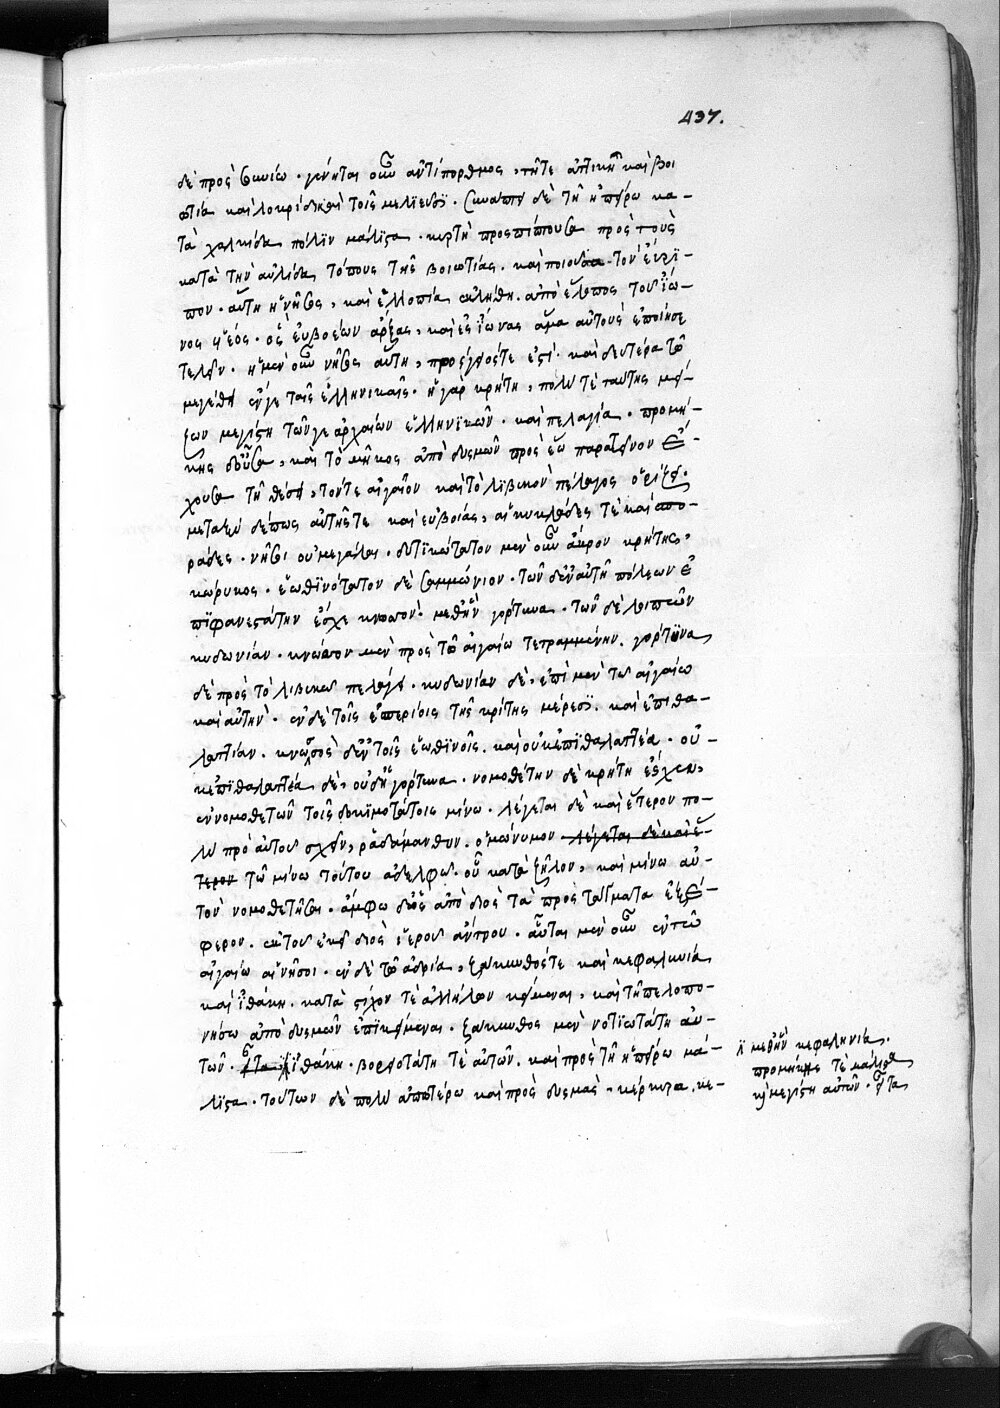 437.
δὲ πρὸς σουνίω · γείνηται οὖν ἀντίπορθμος, τῆτε ἀττικῆ καὶ βοι
ωτία καὶ λοκρίδι καὶ τοῖς μηλιεῦσϊ · συνάπτει δὲ τῆ ἠπείρω κα-
τὰ χαλκίδα πόλϊν μάλϊστα · καὶ τῆ προσπίπτουσα πρὸς τοὺς
κατὰ τὴν αὐλίδα τόπους τῆς βοιωτίας · καὶ ποιοῦσα τὸν εὔρϊ-
πον · αὕτη ἡ νῆσος, καὶ ἐλλοπία ἐκλήθη · ἀπὸ ἔλοπος τοῦ ἴω-
νος υἱέος · ὃς εὐβοέων ἄρξας, καὶ ἐς ἴωνας ἅμα αὐτοὺς ἐποίησε
τελεῖν · ἡ μὲν οὖν νῆσος αὕτη, πρόσγειός τέ ἐστί · καὶ δευτέρα τῶ
μεγέθει ἔν γε ταῖς ἑλληνικαῖς · ἡ γὰρ κρήτη, πολύ τε ταύτης μεί-
ζων μεγίστη τῶν γε ἀρχαίων ἑλληνϊκῶν · καὶ πελαγία · προμή-
κης οὖσα, καὶ τὸ μῆκος ἀπὸ δυσμῶν πρὸς ἕω παρατεῖνον ἔ-
χουσα τῆ θέσει, τόν τε αἰγαῖον καὶ τὸ λϊβυκὸν πέλαγος ὁρίζει ·
μεταξὺ δέ πως αὐτῆς τε καὶ εὐβοίας, αἱ κυκλάδες τὲ καὶ σπο-
ράδες · νῆσοι οὐ μεγάλαι · δυτϊκώτατον μὲν οὖν ἄκρον κρήτης,
κώρυκος · ἑωθϊνότατον δὲ σαμμώνιον · τῶν δ' ἐν αὐτῆ πόλεων ἐ
πϊφανεστάτην ἔσχε κνωσόν · μεθ' ἣν γόρτυνα · τῶν δὲ λοιπῶν
κυδωνίαν · κνωσὸν μὲν πρὸς τῶ αἰγαίω τετραμμένην · γόρτυνα
δὲ πρὸς τὸ λιβυκὸν πέλαγος · κυδωνίαν δὲ, ἐπὶ μὲν τῶ αἰγαίω
καὶ αὐτὴν · ἐν δὲ τοῖς ἑσπερίοις τῆς κρίτης μέρεσϊ · καὶ ἐπιθα-
λαττίαν · κνωσσὸς δ' ἐν τοῖς ἑωθϊνοῖς · καὶ οὐκ ἐπϊθαλαττία · οὐ-
κ ἐπϊθαλαττία δὲ, οὐδ' ἡ γόρτυνα · νομοθέτην δὲ κρήτη ἔσχεν,
ἐν νομοθετῶν τοῖς δοκϊμοτάτοις μίνω · λέγεται δὲ καὶ ἕτερον πο-
λὺ πρὸ αὐτοῦ σχεῖν, ῥαδάμανθυν · ὁμώνυμον λέγεται δὲ καὶ ἕ-
τερον τῶ μίνω τούτου ἀδελφῶ · οὗ κατὰ ζῆλον, καὶ μίνω αὐ-
τὸν νομοθετῆσαι · ἄμφω δὲ ὡς ἀπὸ διὸς τὰ προστάγματα ἐξέ-
φερον · ἐκ τοῦ ἐκεῖ διὸς ἱεροῦ ἄντρου · αὗται μὲν οὖν ἐν τῶ
αἰγαίω αἱ νῆσοι · ἐν δὲ τῶ ἀδρία, ζάκυνθός τε καὶ κεφαληνία
καὶ ἰθάκη · κατὰ στίχον τὲ ἀλλήλων κείμεναι, καὶ τῆ πελοπο-
νήσω ἀπὸ δυσμῶν ἐπϊκείμεναι · ζάκυνθος μὲν νοτϊωτάτη αὐ-
τῶν · εἶτα ἰθάκη · βορειοτάτη τὲ αὐτῶν · καὶ πρὸς τῆ ἠπείρω μά-
λϊστα · τούτων δὲ πολὺ ἀπωτέρω καὶ πρὸς δυσμὰς · κέρκυρα · κε-
μεθ' ἣν κεφαληνία ·
προμήκης τὲ μάλιστα
καὶ μεγίστη αὐτῶν · εἶτα